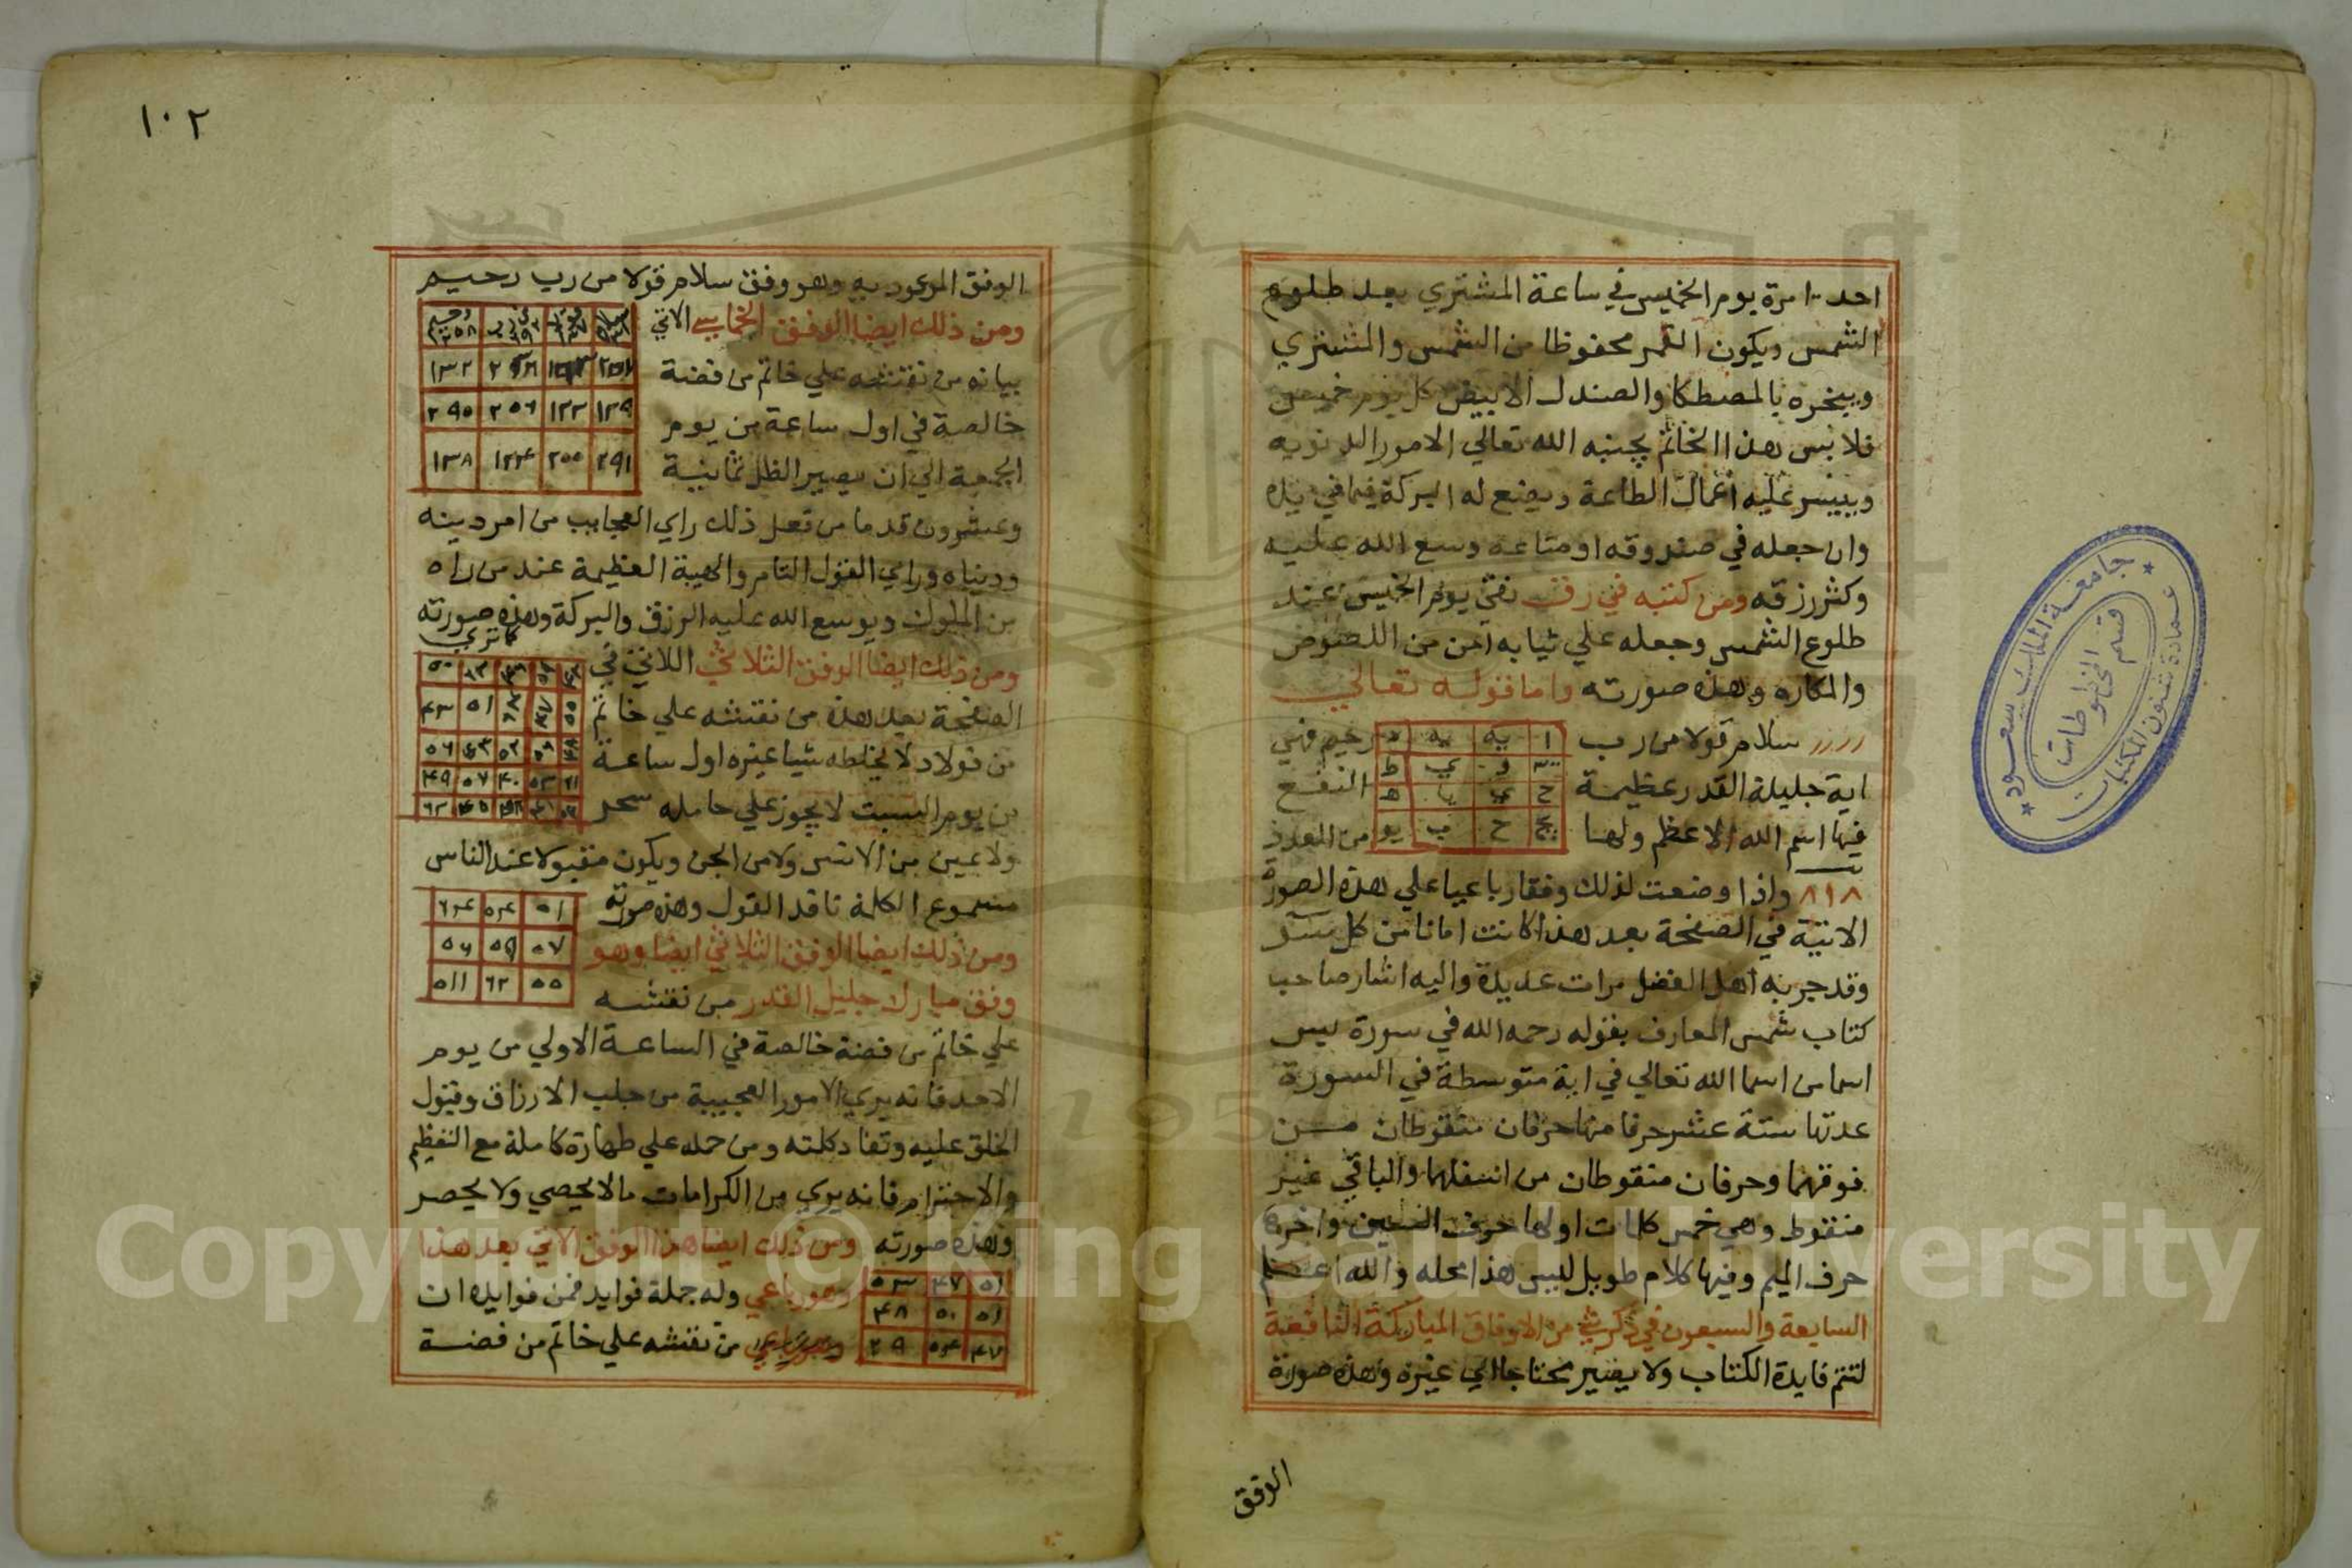 احد ١٠ مرة يوم الخميس في ساعة المشتري بعد طلوع
الشمس ويكون القمر محفوظا من الشمس والمشتري
ويبخره بالمصطكا والصندل الابيض كل يوم خميس
فلابس هذا الخاتم يجنبه الله تعالي الامور الدنويه
وييسر عليه اعمال الطاعة ويضع له البركة فيما في يده
وان جعله في صندوقه او متاعه وسع الله عليه
وكثر رزقه ومن كتبه في رق نقي يوم الخميس عند
طلوع الشمس وجعله علي ثيابه امن من اللصوص
والمكاره وهذه صورته واما قوله تعالي
سلام قولا من رب رحيم فهي
اية جليلة القدر عظيمة النفع
فيها اسم الله الاعظم ولها من العدد
٨١٨ واذا وضعت لذلك وفقا رباعيا علي هذه الصورة
الاتية في الصفحة بعد هذا كانت امانا من كل
وقد جربه اهل الفضل مرات عديدة واليه اشار صاحب
كتاب شمس المعارف بقوله رحمه الله في سورة يس
اسما من اسما الله تعالي في اية متوسطة في السورة
عدتها ستة عشر حرفا منها حرفان منقوطان من
فوقهما وحرفان منقوطان من اسفلهما والباقي غير
منقوط وهي خمس كلمات اولها حرف السين واخرها
حرف الميم وفيها كلام طويل ليس هذا محله والله اعلم
السابعة والسبعون في ذكر شي من الاوفاق المباركة النافعة
لتتم فايدة الكتاب ولا يصير محتاجا الي غيره وهذه صورة
الوفق
١٠٢
الوفق الموعود به وهو وفق سلام قولا من رب رحيم
ومن ذلك ايضا الوفق الخماسي الاتي
بيانه من نقشه علي خاتم من فضة
خالصة في اول ساعة من يوم
الجمعة الي ان يصير الظل ثمانية
١٣٩ ١٣٣ ٢٥٦ ٢٩٥
٢٩١ ٢٥٥ ١٣٤ ١٣٨
وعشرون قدما من فعل ذلك راي العجايب من امر دينه
ودنياه وراي القول التام والهيبة العظيمة عند من راه
من الملوك ويوسع الله عليه الرزق والبركة وهذه صورته
كما تري
ومن ذلك ايضا الوفق الثلاثي اللاتي في
الصفحة بعد هذه من نقشه علي خاتم
من فولاد لا يخلطه شيا غيره اول ساعة
من يوم السبت لا يجوز علي حامله سحر
ولا عين من الانس ولا من الجن ويكون مقبولا عند الناس
مسموع الكلمة نافد القول وهذه صورته
ومن ذلك ايضا الوفق الثلاثي ايضا وهو
وفق مبارك جليل القدر من نقشه
٥٧ ٥٩ ٥٦
٥٥ ٦٢ ٥١١
علي خاتم من فضة خالصة في الساعة الاولي من يوم
الاحد فانه يري الامور العجيبة من جلب الارزاق وقبول
الخلق عليه ونفاد كلمته ومن حمله علي طهارة كاملة مع التعظيم
والاحترام فانه يري من الكرامات ما لا يحصي ولا يحصر
وهذه صورته ومن ذلك ايضا هذا الوفق الاتي بعد هذا
وهو رباعي وله جملة فوايد فمن فوايده ان
من نقشه علي خاتم من فضة
٥١ ٤٧ ٥٣
٥١ ٥٠ ٤٨
٤٧ ٥٤ ٢٩
جامعة الملك سعود
عمادة شئون المكتبات
قسم المخطوطات
Copyright © King Saud University